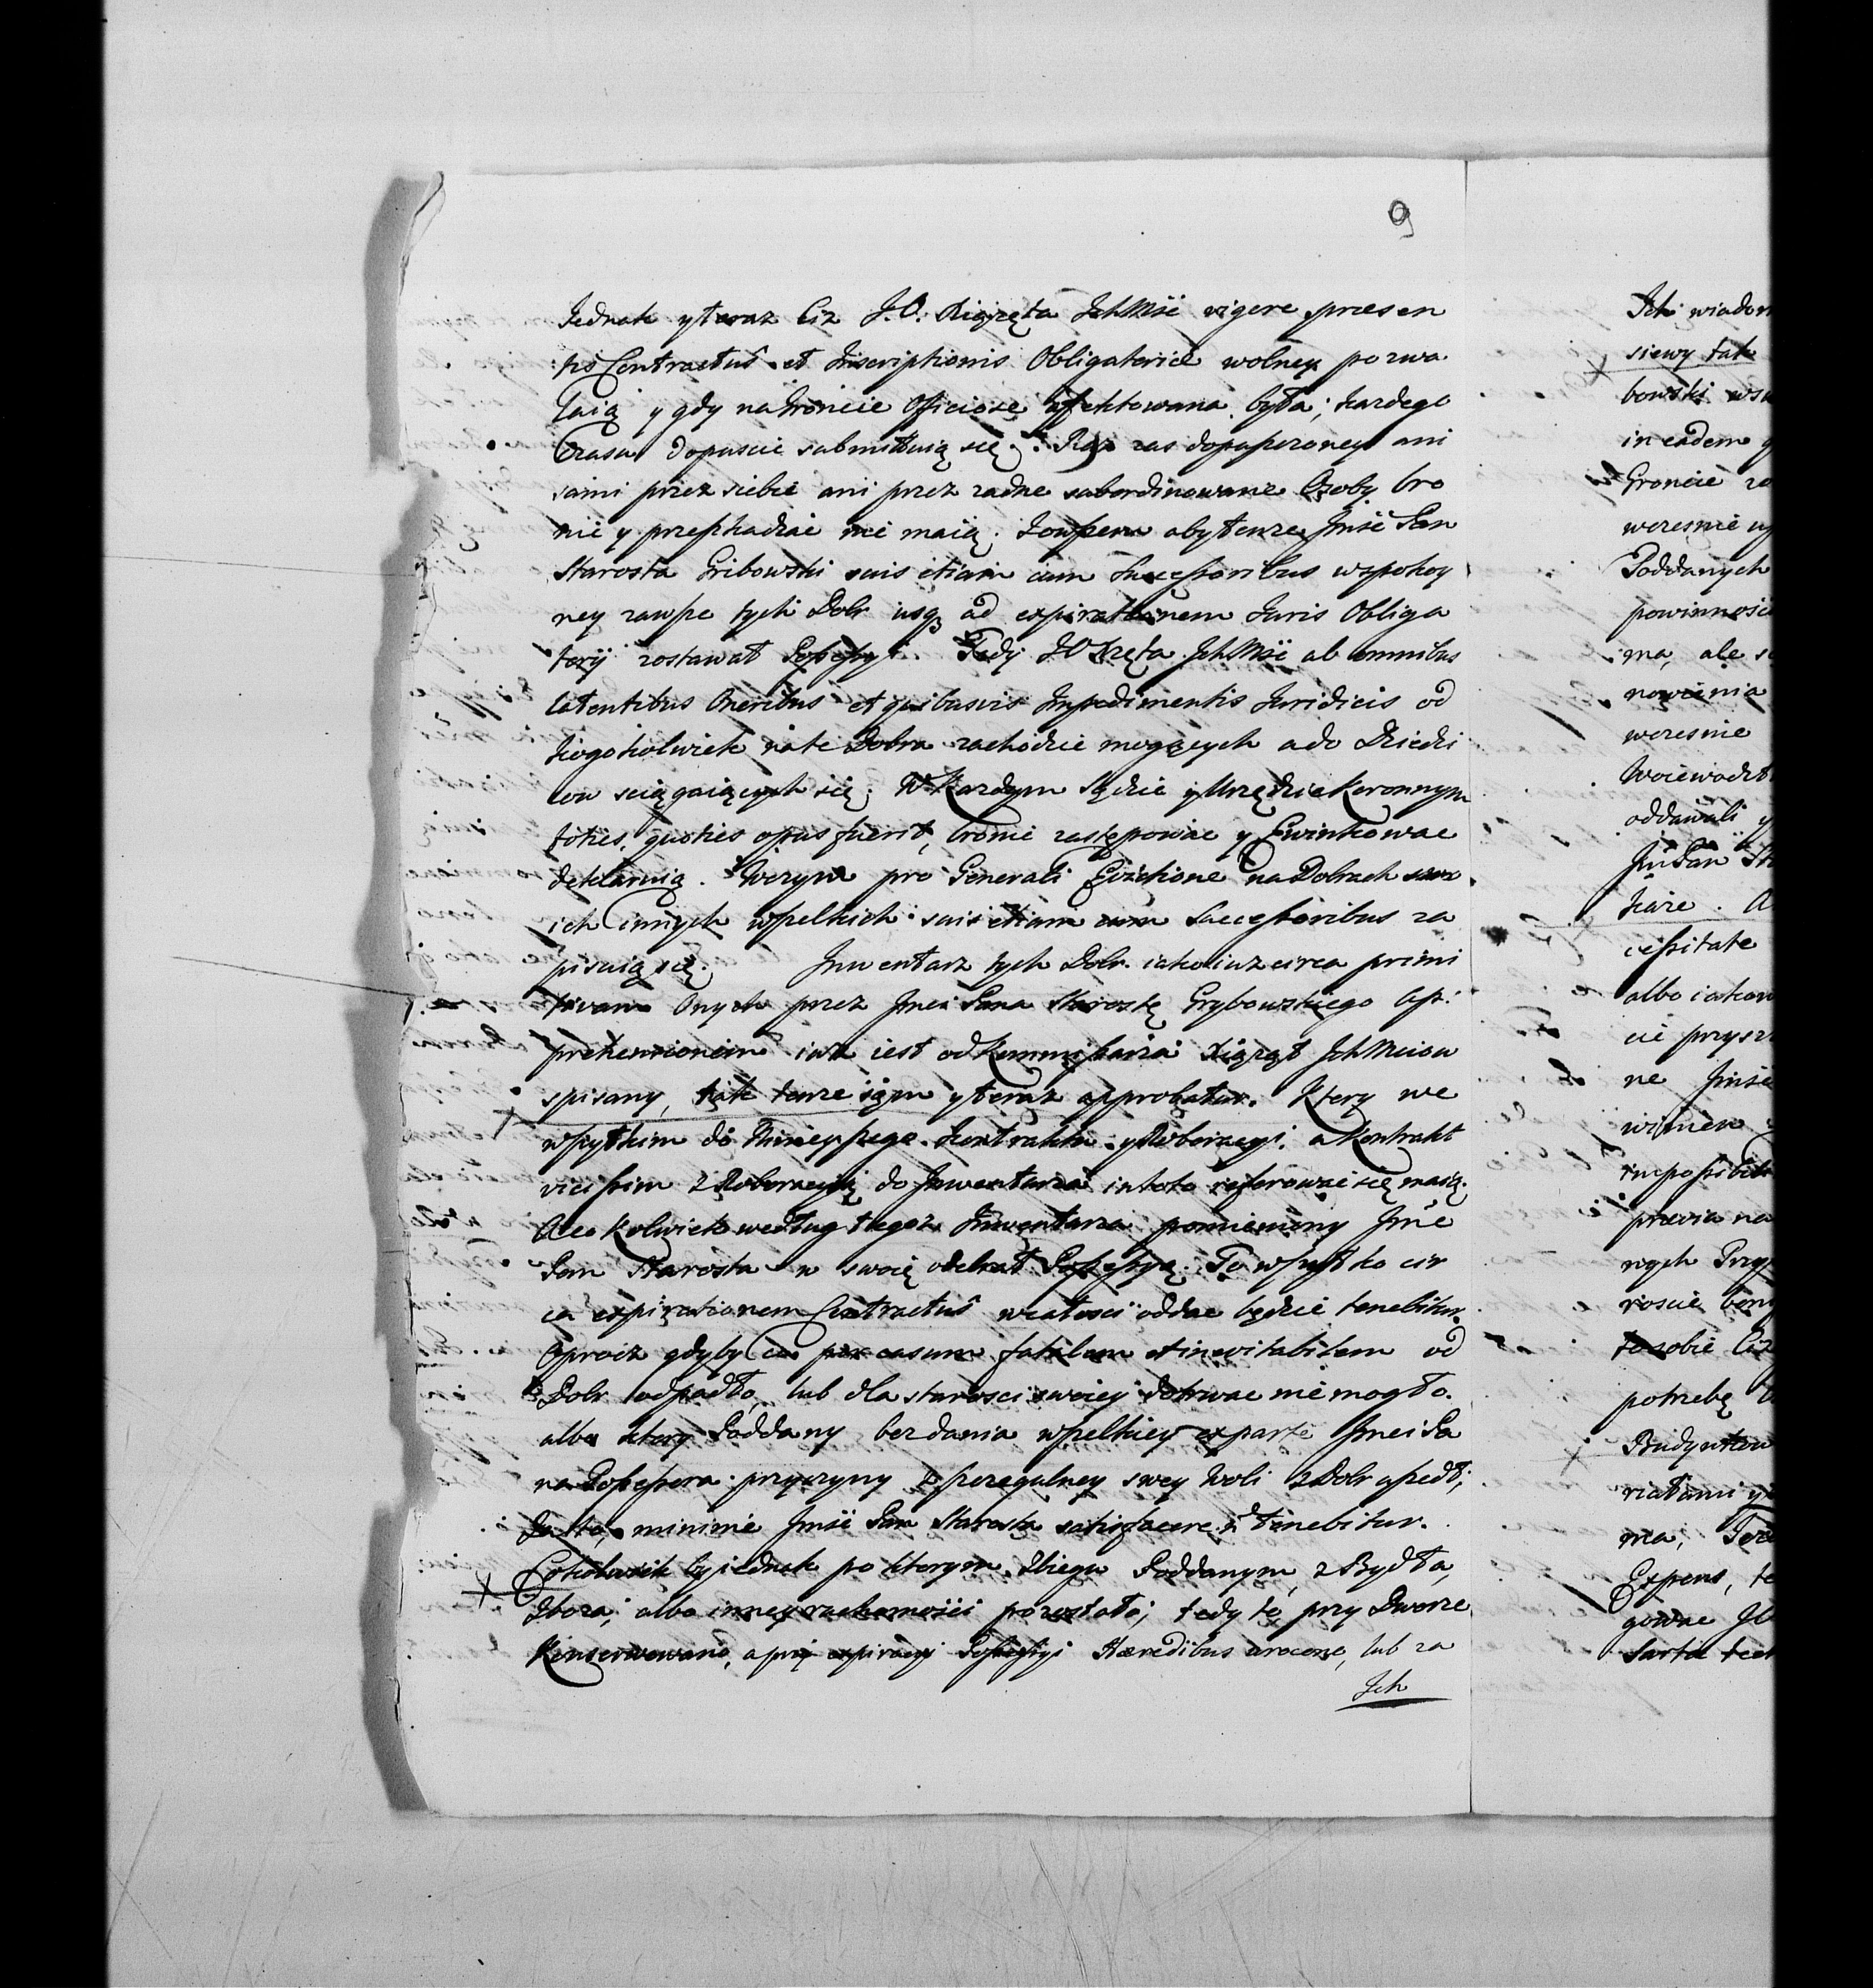 9
Jednak y teraz Ciz J.O. Xiążęta IchMśc vigore præsen
tis Contractus et Inscriptionis Obligatoriæ wolney pozwa
laią y gdy na Gròncie Oficiose affektowana była, kazdego
Czasu dopuscic submittuią się. Raz zas dopuszczoney ani
sami przez siebie ani przez zadne subordinowane Osoby bro
nić y przeszkadzać nie maią. Zowszem aby tenze Jmść Pan
Starosta Gribowski suis etiam cum Successoribus w spokoy
ney zawsze tych Dobr usq ad expirationem Juris Obliga
torij zostawał Possessyi. Tedy JO Xżęta IchMść ab omnibus
latentibus Oneribus et quibusvis Impedimentis Juridicis od
kogokolwiek na te Dobra zachodzic mogących a do Dziedzi
cow sciągaiących się. W Kazdym Sądzie y Urzędzie Koronnym
toties, quoties opus fuerit, bronic zastępowac y Ewinkowac
deklaruią. Wczym pro Generali Evictione na Dobrach swo
ich innych wszelkich suis etiam cum Successoribus za
pisuią się. Inwentarz tych Dobr iako iuz circa primi
tivam Onych przez Jmci Pana Starostę Grybowskiego Ap
prehensionem iuz iest od Kommissarza Xiążąt IchMciow
spisany, tak tenze sam y teraz approbatur. Ktory we
wszytkim do Ninieyszego Kontraktu y Roboracyi, a Kontrakt
vicissim z Roboracyią do Inwentarza in toto referowac się maią.
Cokolwiek według tegoz Inwentarza pomieniony Jmć
Pan Starosta w swoią odebrał Possessyą. To wszystko cir
ca expirationem Contractus w całosci oddac będzie tenebitur.
Oprocz gdyby co per casum fatalem et inevitabilem od
Dobr odpadło, lub dla starosci swoiey dotrwac nie mogło.
albo ktory Poddany bez dania wszelkiey ex parte Jmci Pa
na Possessora przyczyny z szczegulney swey Woli z Dobr uszedł,
Za to, minime Jmść Pan Starosta satisfacere tenebitur.
Cokolwiek by iednak po ktorym Zbiegu Poddanym, z Bydła,
Zboza, albo inney ruchomości pozostało, tedy to przy Dworze
Konserwowano, a przy expiracyi Possessyi Hæredibus wrocone, lub za
Ich
Ich wiadom
siewy tak
bowski wsz
in eadem q
Groncie zo
wczesnie
Poddanych
powinnośc
ma, ale
nowienia
wczesnie
Woiewodzt
oddawali y
Jm Pan St
kaze. A
cessitate
albo iakow
cie przysz
ne Jmść
winien
impossibili
prævia na
nych Przy
roscie
to sobie Ciz
potrzebę
Budynkow
riałami y
ma, Tedy
Expens, te
gowac
Sarta tect